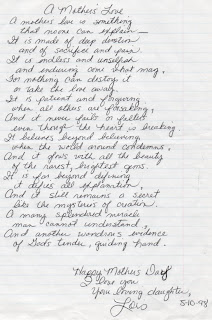 A Mother's Love
A mothers love is something
that no one can explain—
It is made of deep devotion
and of sacrifice and pain.
It is endless and unselfish
and enduring come what may,
For nothing can destroy it
or take the love away.
It is patient and forgiving
when all others are forsaking,
And it never fails or falters
even though the heart is breaking.
It believes beyond believing
when the world around condemns,
And it glows with all the beauty
of the rarest, brightest gems.
It is far beyond defining
it defies all explanation,
And it still remains a secret
like the mysteries of creation.
A many splendored miracle
man cannot understand,
And another wondrous evidence
of God's tender, guiding hand.
"Happy Mothers Day"
I love you
your loving daughter,
Lois
5-10-98